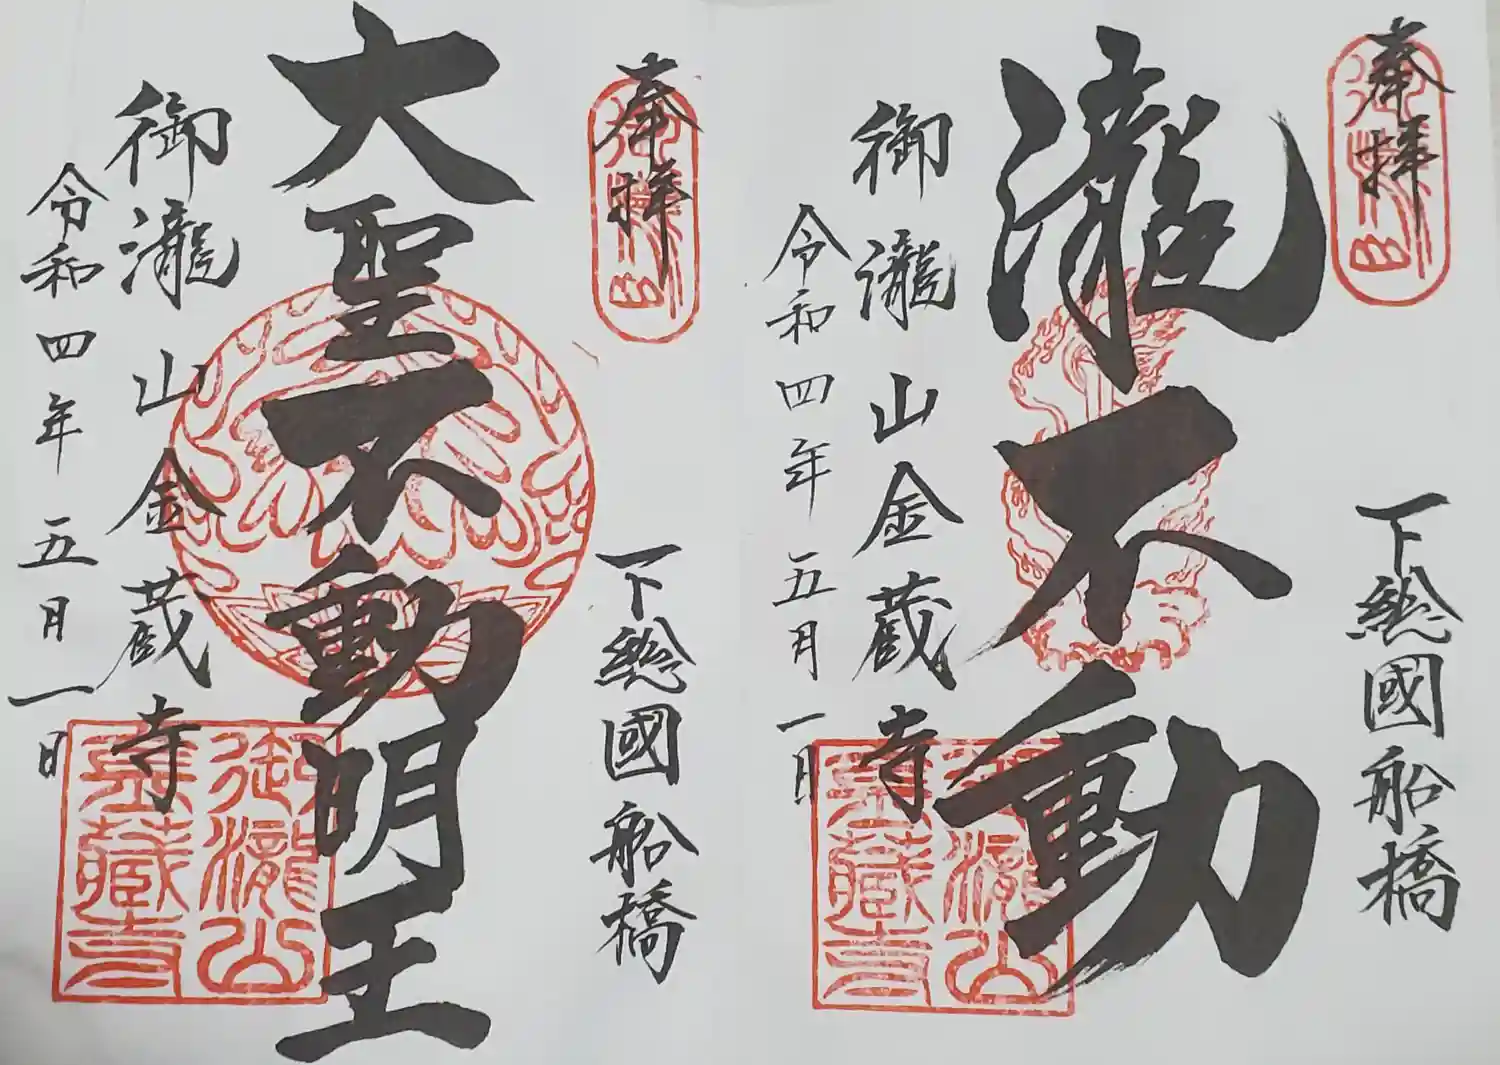 奉拝
下総國船橋
瀧不動
御瀧山金蔵寺
令和四年五月一日
御瀧山
金藏寺
奉拝
下総國船橋
大聖不動明王
御瀧山金蔵寺
令和四年五月一日
御瀧山
金藏寺